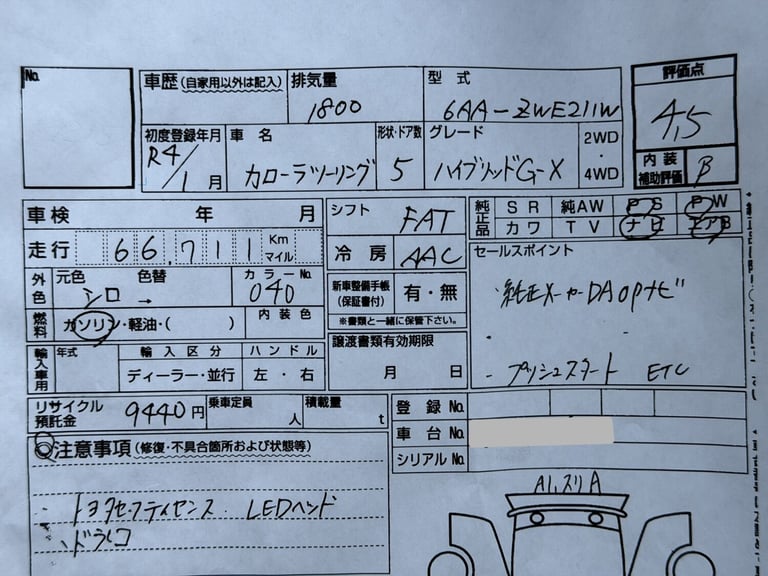 No.
車歴 (自家用以外は記入)
排気量
1800
型式
6AA-ZWE211W
評価点
4.5
初度登録年月
R4/1月
車名
カローラツーリング
形状・ドア数
5
グレード
ハイブリッドG-X
2WD
・
4WD
内装
補助評価
B
車検 年 月
シフト
FAT
純正品
SR 純AW PS PW
カワ TV ナビ エアB
走行 66,711 Km
マイル
冷房
AAC
セールスポイント
外色
元色 色替
シロ →
カラーNo.
040
新車整備手帳
(保証書付)
有・無
※書類と一緒に保管下さい。
・純正メーカーDAOPナビ
燃料
ガソリン・軽油・( )
内装色
輸入車用
年式
輸入区分
ハンドル
ディーラー・並行
左・右
譲渡書類有効期限
月 日
・
・プッシュスタート ETC
リサイクル
預託金
9440円
乗車定員
人
積載量
t
登録No.
車台No.
シリアルNo.
注意事項 (修復・不具合箇所および状態等)
・トヨタセーフティセンス LEDヘッド
・ドラレコ